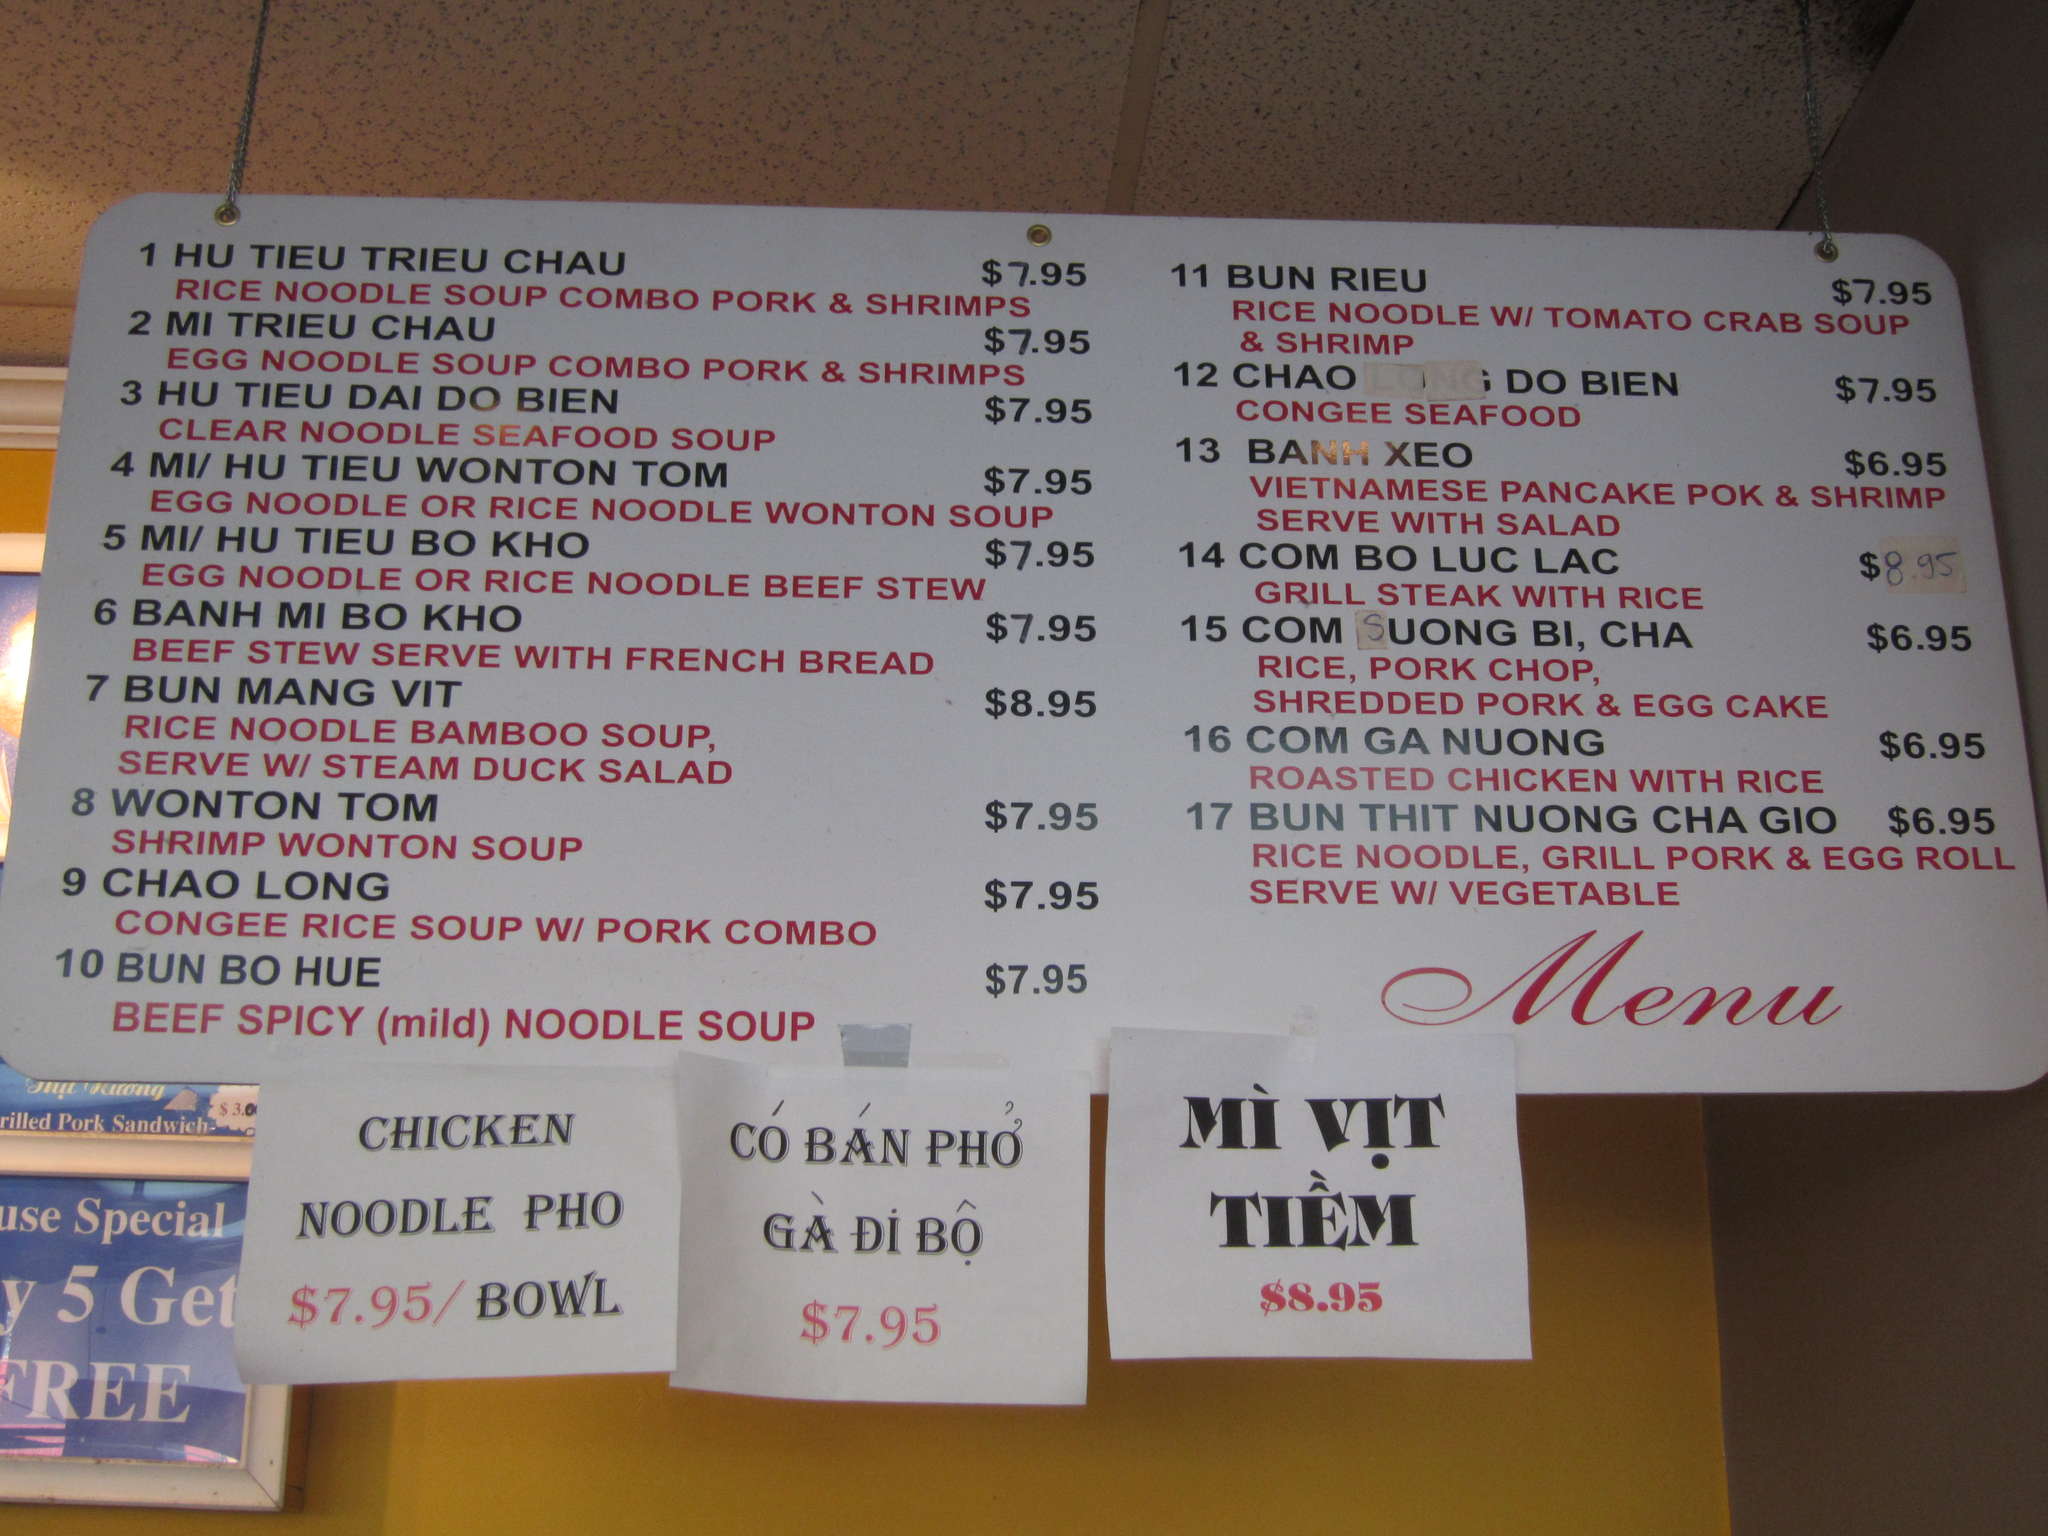 1 HU TIEU TRIEU CHAU $7.95
RICE NOODLE SOUP COMBO PORK & SHRIMPS
2 MI TRIEU CHAU $7.95
EGG NOODLE SOUP COMBO PORK & SHRIMPS
3 HU TIEU DAI DO BIEN $7.95
CLEAR NOODLE SEAFOOD SOUP
4 MI/ HU TIEU WONTON TOM $7.95
EGG NOODLE OR RICE NOODLE WONTON SOUP
5 MI/ HU TIEU BO KHO $7.95
EGG NOODLE OR RICE NOODLE BEEF STEW
6 BANH MI BO KHO $7.95
BEEF STEW SERVE WITH FRENCH BREAD
7 BUN MANG VIT $8.95
RICE NOODLE BAMBOO SOUP,
SERVE W/ STEAM DUCK SALAD
8 WONTON TOM $7.95
SHRIMP WONTON SOUP
9 CHAO LONG $7.95
CONGEE RICE SOUP W/ PORK COMBO
10 BUN BO HUE $7.95
BEEF SPICY (mild) NOODLE SOUP
11 BUN RIEU $7.95
RICE NOODLE W/ TOMATO CRAB SOUP
& SHRIMP
12 CHAO LONG DO BIEN $7.95
CONGEE SEAFOOD
13 BANH XEO $6.95
VIETNAMESE PANCAKE POK & SHRIMP
SERVE WITH SALAD
14 COM BO LUC LAC $8.95
GRILL STEAK WITH RICE
15 COM SUONG BI, CHA $6.95
RICE, PORK CHOP,
SHREDDED PORK & EGG CAKE
16 COM GA NUONG $6.95
ROASTED CHICKEN WITH RICE
17 BUN THIT NUONG CHA GIO $6.95
RICE NOODLE, GRILL PORK & EGG ROLL
SERVE W/ VEGETABLE
Menu
CHICKEN
NOODLE PHO
$7.95/ BOWL
CÓ BÁN PHỞ
GÀ ĐI BỘ
$7.95
MÌ VỊT
TIỀM
$8.95
Thịt Nướng
rilled Pork Sandwich $3.00
use Special
y 5 Get
FREE